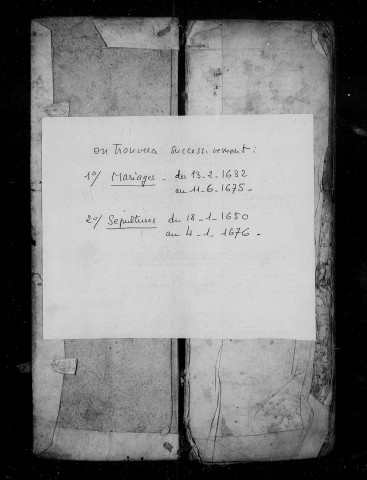 on trouvera successivement :
1°/ Mariages - du 13-2-1632
au 11-6-1675 -
2°/ Sépultures du 18-1-1650
au 4-1-1676 -